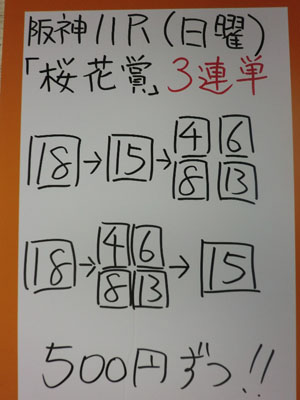 阪神11R(日曜)
「桜花賞」3連単
18→15→4 6 8 13
18→4 6 8 13→15
500円ずつ!!